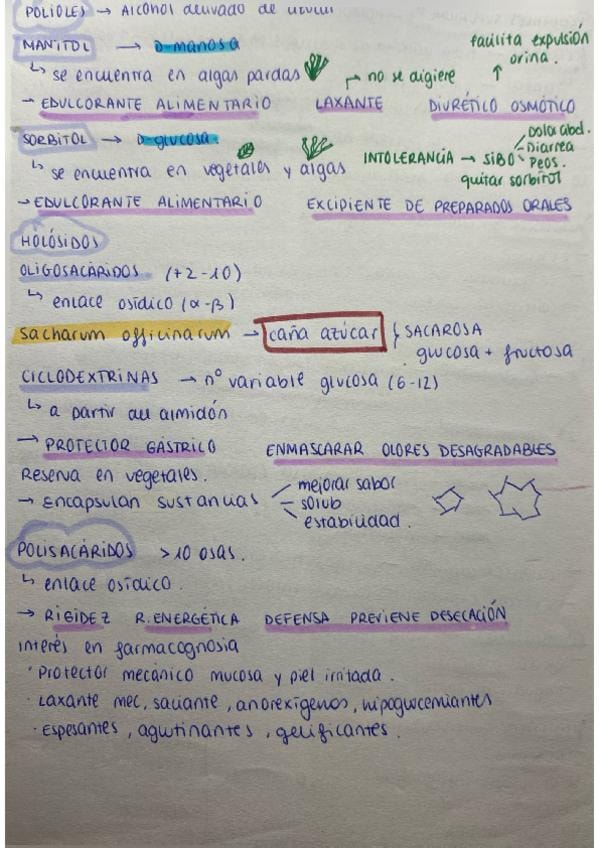 POLIOLES → Alcohol derivado de
MANITOL → D-manosa
facilita expulsión
orina.
↳ se encuentra en algas pardas
↑
→ no se digiere
→ EDULCORANTE ALIMENTARIO LAXANTE DIURÉTICO OSMÓTICO
SORBITOL → D-glucosa
↳ se encuentra en vegetales y algas
INTOLERANCIA → SIBO
Dolor abd.
Diarrea
Peos.
quitar sorbitol
→ EDULCORANTE ALIMENTARIO EXCIPIENTE DE PREPARADOS ORALES
HOLÓSIDOS
OLIGOSACÁRIDOS (+2-10)
↳ enlace osídico (α-β)
Sacharum officinarum → caña azúcar } SACAROSA
glucosa + fructosa
CICLODEXTRINAS → nº variable glucosa (6-12)
↳ a partir del almidón
→ PROTECTOR GÁSTRICO ENMASCARAR OLORES DESAGRADABLES
Reserva en vegetales.
→ Encapsulan sustancias
mejorar sabor
solub
estabilidad.
POLISACÁRIDOS >10 osas.
↳ enlace osídico.
→ RIGIDEZ R.ENERGÉTICA DEFENSA PREVIENE DESECACIÓN
Interés en farmacognosia
· Protector mecánico mucosa y piel irritada.
· Laxante mec, saciante, anorexígenos, hipoglucemiantes
· Espesantes, aglutinantes, gelificantes.